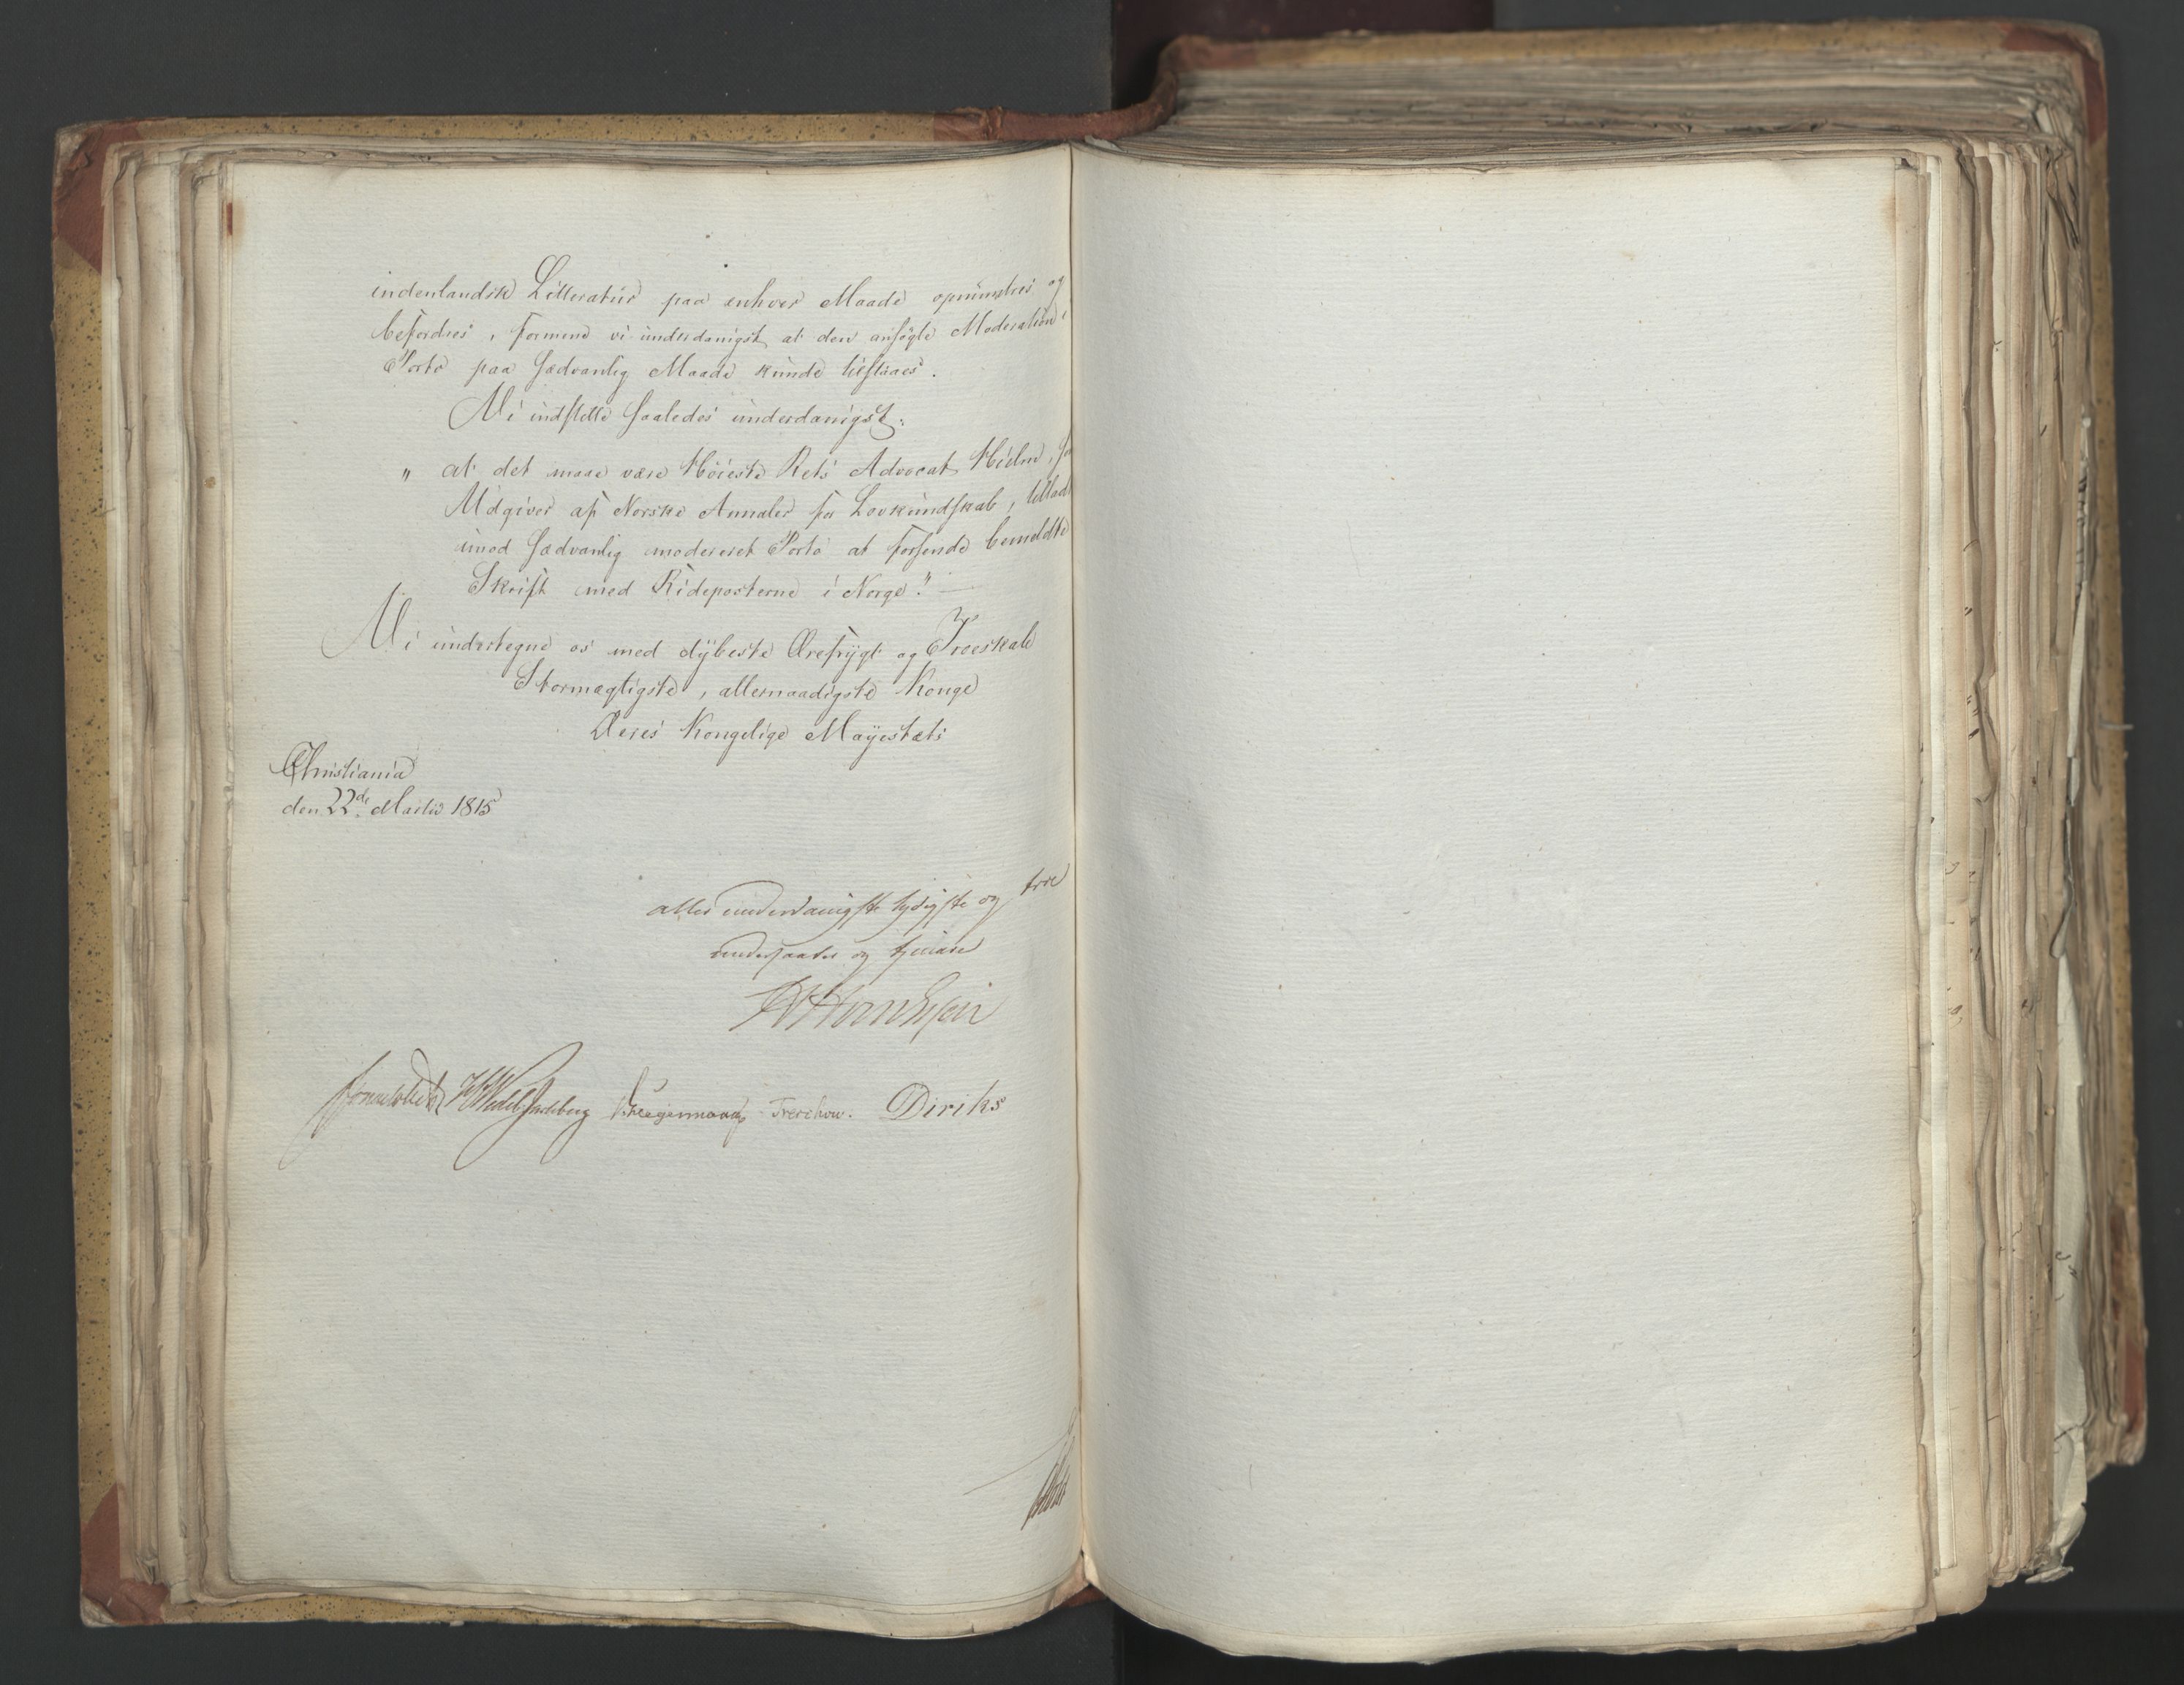 indenlandsk Litteratur paa enhver Maade opmuntres og
befordres, formene vi underdanigst at den ansøgte Moderation i
Porto paa sædvanlig Maade kunde tilstaaes.
Vi indstille saaledes underdanigst:
" at det maae være Höieste Rets Advocat Hielm, so
Udgiver af Norske Annaler for Lovkundskab, tillad
imod sædvanlig modereret Porto at forsende bemeldte
Skrift med Rideposterne i Norge." —
Vi undertegne os med dÿbeste Ærefrÿgt og Troeskab
Stormægtigste, allernaadigste Konge
Deres Kongelige Mayestæts
Christiania
den 22de Martii 1815
aller underdanigste lydigste og troe
undersaatter og tjenere
Sommerhielm HWedel Jarlsberg Kreigsmann Treschow. Diriks